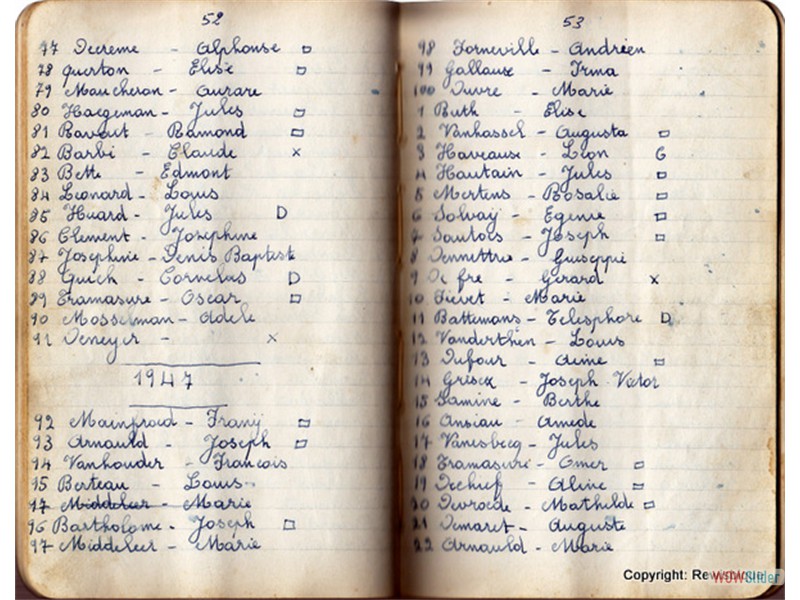 52
77 Decreme - Alphonse □
78 Querton - Elise □
79 Maucheron - Aurare
80 Haegeman - Jules □
81 Bavaut - Ramond □
82 Barbi - Claude x
83 Bette - Edmont
84 Leonard - Louis
85 Huard - Jules D
86 Clement - Josephine
87 Josephine - Denis Baptest
88 Guich - Cornelus D
89 Eramasure - Oscar □
90 Mosselman - Adele
91 Deneyer - x
1947
92 Mainfroid - Franij □
93 Arnauld - Joseph □
94 Vanhouder - Francois
95 Berteau - Louis
97 Middeleer - Marie
96 Bartholome - Joseph □
97 Middeleer - Marie
53
98 Forneville - Andréen
99 Gallaux - Irma
100 Duvre - Marie
1 Buth - Elise
2 Vanhassel - Augusta □
3 Haveause - Léon G
4 Hautain - Jules □
5 Mertens - Rosalie □
6 Solvay - Egenie □
7 Sautois - Joseph □
8 Demittrie - Guiseppie
9 De fre - Gerard x
10 Fievet - Marie
11 Battemans - Telesphore D
12 Vanderthen - Louis
13 Dufour - Aline □
14 Griscz - Joseph Victor
15 Lamine - Berthe
16 Ansiau - Amede
17 Vanesbecq - Jules
18 Eramasure - Omer □
19 Dechief - Aline □
20 Devroede - Mathilde □
21 Demaret - Auguste
22 Arnauld - Marie
Copyright:
WOWSlider